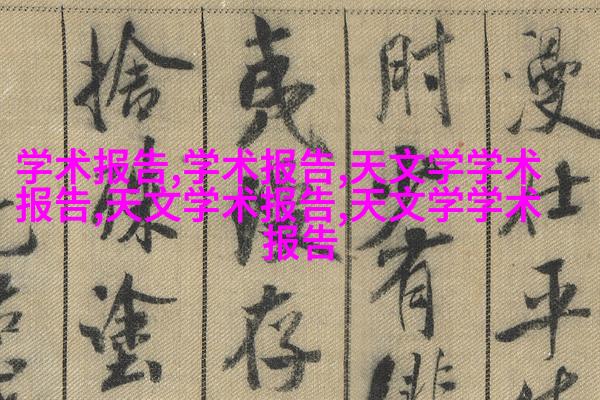 学术报告,学术报告,天文学学术
报告,天文学术报告,天文学学术
报告
漫仕平
肘少有俳
夷漫存
捨殊塗